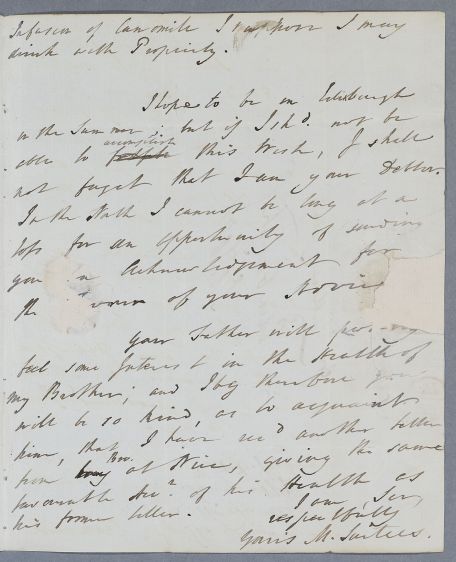 Infusion of Camomile I suppose I may
drink with Propriety.
I hope to be in Edinburgh
in the Summer; but if I shd. not be
able to accomplish this Wish, I shall
not forget that I am your Debtor.
In the North I cannot be long at a
loss for an opportunity of sending
you an Acknowledgment for
the of your Advice
Your Father will
feel some Interest in the Health of
my Brother; and I beg therefore you
will be so kind, as to acquaint
him, that I have recd another letter
from my Bro. at Nice, giving the same
favourable Acct. of his Health as
his former letter. I am Sir
respectfully
Yours M. Surtees.